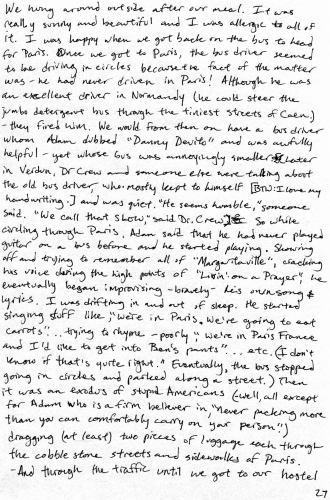 We hung around outside after our meal. It was
really sunny and beautiful and I was allergic to all of
it. I was happy when we got back on the bus to head
for Paris. Once we got to Paris, the bus driver seemed
to be driving in circles because the fact of the matter
was - he had never driven in Paris! Although he was
an excellent driver in Normandy (he could steer the
jumbo detergent bus through the tiniest streets of Caen)
- they fired him. We would from then on have a bus driver
whom Adam dubbed "Danny Devito" and was awfully
helpful - yet whose bus was annoyingly smaller. Later
in Verdun, Dr Crew and someone else were talking about
the old bus driver, who mostly kept to himself [BTW: I love my
handwriting.] and was quiet. "He seems humble," someone
said. "We call that slow," said Dr. Crew. So while
circling through Paris, Adam said that he had never played
guitar on a bus before and he started playing. Showing
off and trying to remember all of "Margaritaville", cracking
his voice during the high points of "Livin' on a Prayer", he
eventually began improvising - bravely - his own song &
lyrics. I was drifting in and out of sleep. He started
singing stuff like, "we're in Paris. We're going to eat
carrots"... trying to rhyme - poorly, "we're in Paris France
and I'd like to get into Ben's pants"... etc. (I don't
know if that's quite right." Eventually, the bus stopped
going in circles and parked along a street.) Then
it was an exodus of stupid Americans (well, all except
for Adam who is a firm believer in "Never packing more
than you can comfortably carry on your person")
dragging (at least) two pieces of luggage each through
the cobble stone streets and sidewalks of Paris.
- And through the traffic until we got to our hostel
27